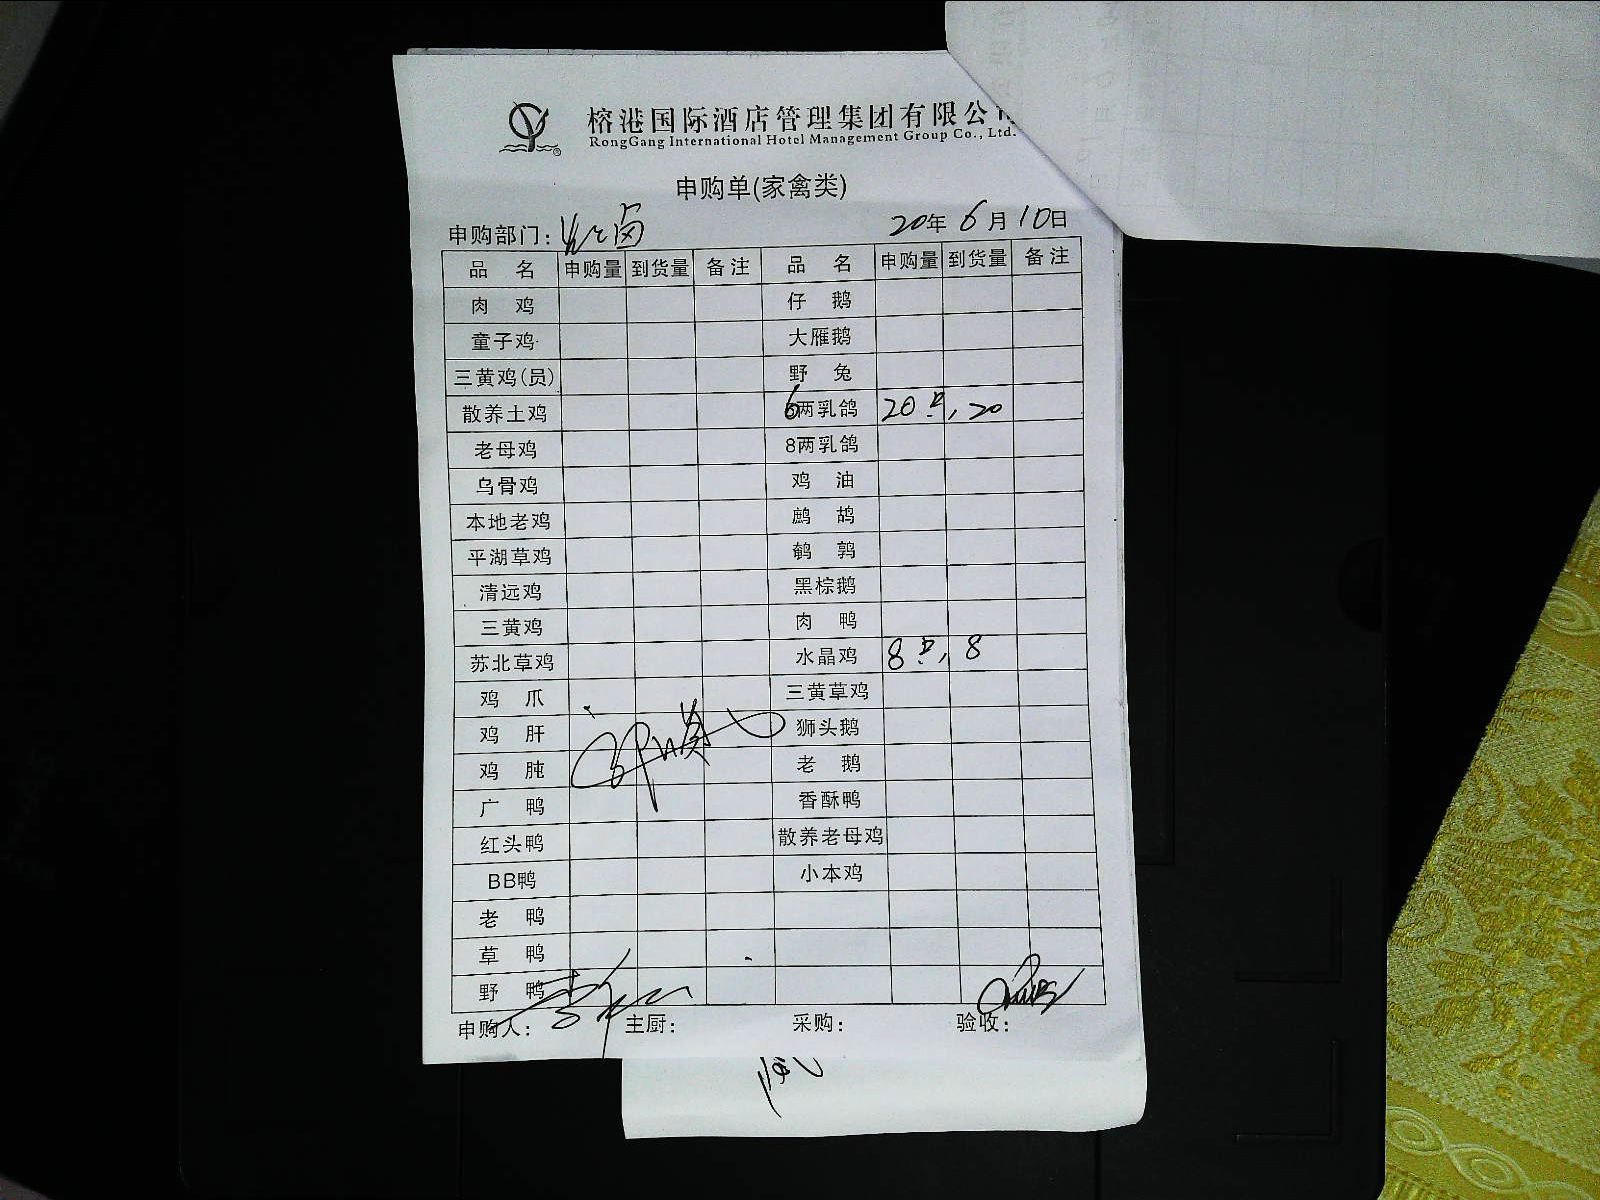 榕港国际酒店管理集团有限公
RongGang International Hotel Management Group Co., Ltd.
申购单(家禽类)
申购部门: 卤 20年6月10日
品 名 申购量 到货量 备注 品 名 申购量 到货量 备注
肉 鸡 仔 鹅
童子鸡 大雁鹅
三黄鸡(员) 野 兔
散养土鸡 6两乳鸽 20只, 20
老母鸡 8两乳鸽
乌骨鸡 鸡 油
本地老鸡 鹧 鸪
平湖草鸡 鹌 鹑
清远鸡 黑棕鹅
三黄鸡 肉 鸭
苏北草鸡 水晶鸡 8只, 8
鸡 爪 三黄草鸡
鸡 肝 狮头鹅
鸡 肫 老 鹅
广 鸭 香酥鸭
红头鸭 散养老母鸡
BB鸭 小本鸡
老 鸭
草 鸭
野 鸭
申购人: 主厨: 采购: 验收: